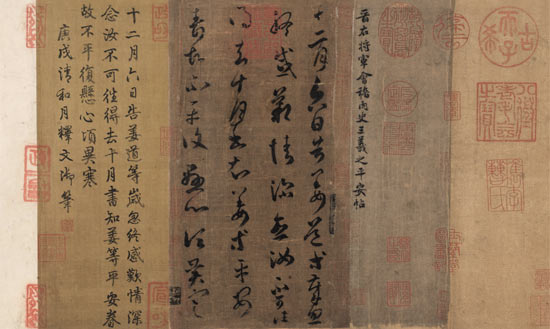 古希天子
八徵耄念之寶
晉右將軍會稽內史王羲之平安帖
十二月六日告姜道等歲忽
終感歎情深念汝不可往
得去十月書知姜等平安
春故不平復懸心頃異寒
十二月六日告姜道等歲忽終感歎情深
念汝不可往得去十月書知姜等平安春
故不平復懸心頃異寒
庚戌清和月釋文御筆